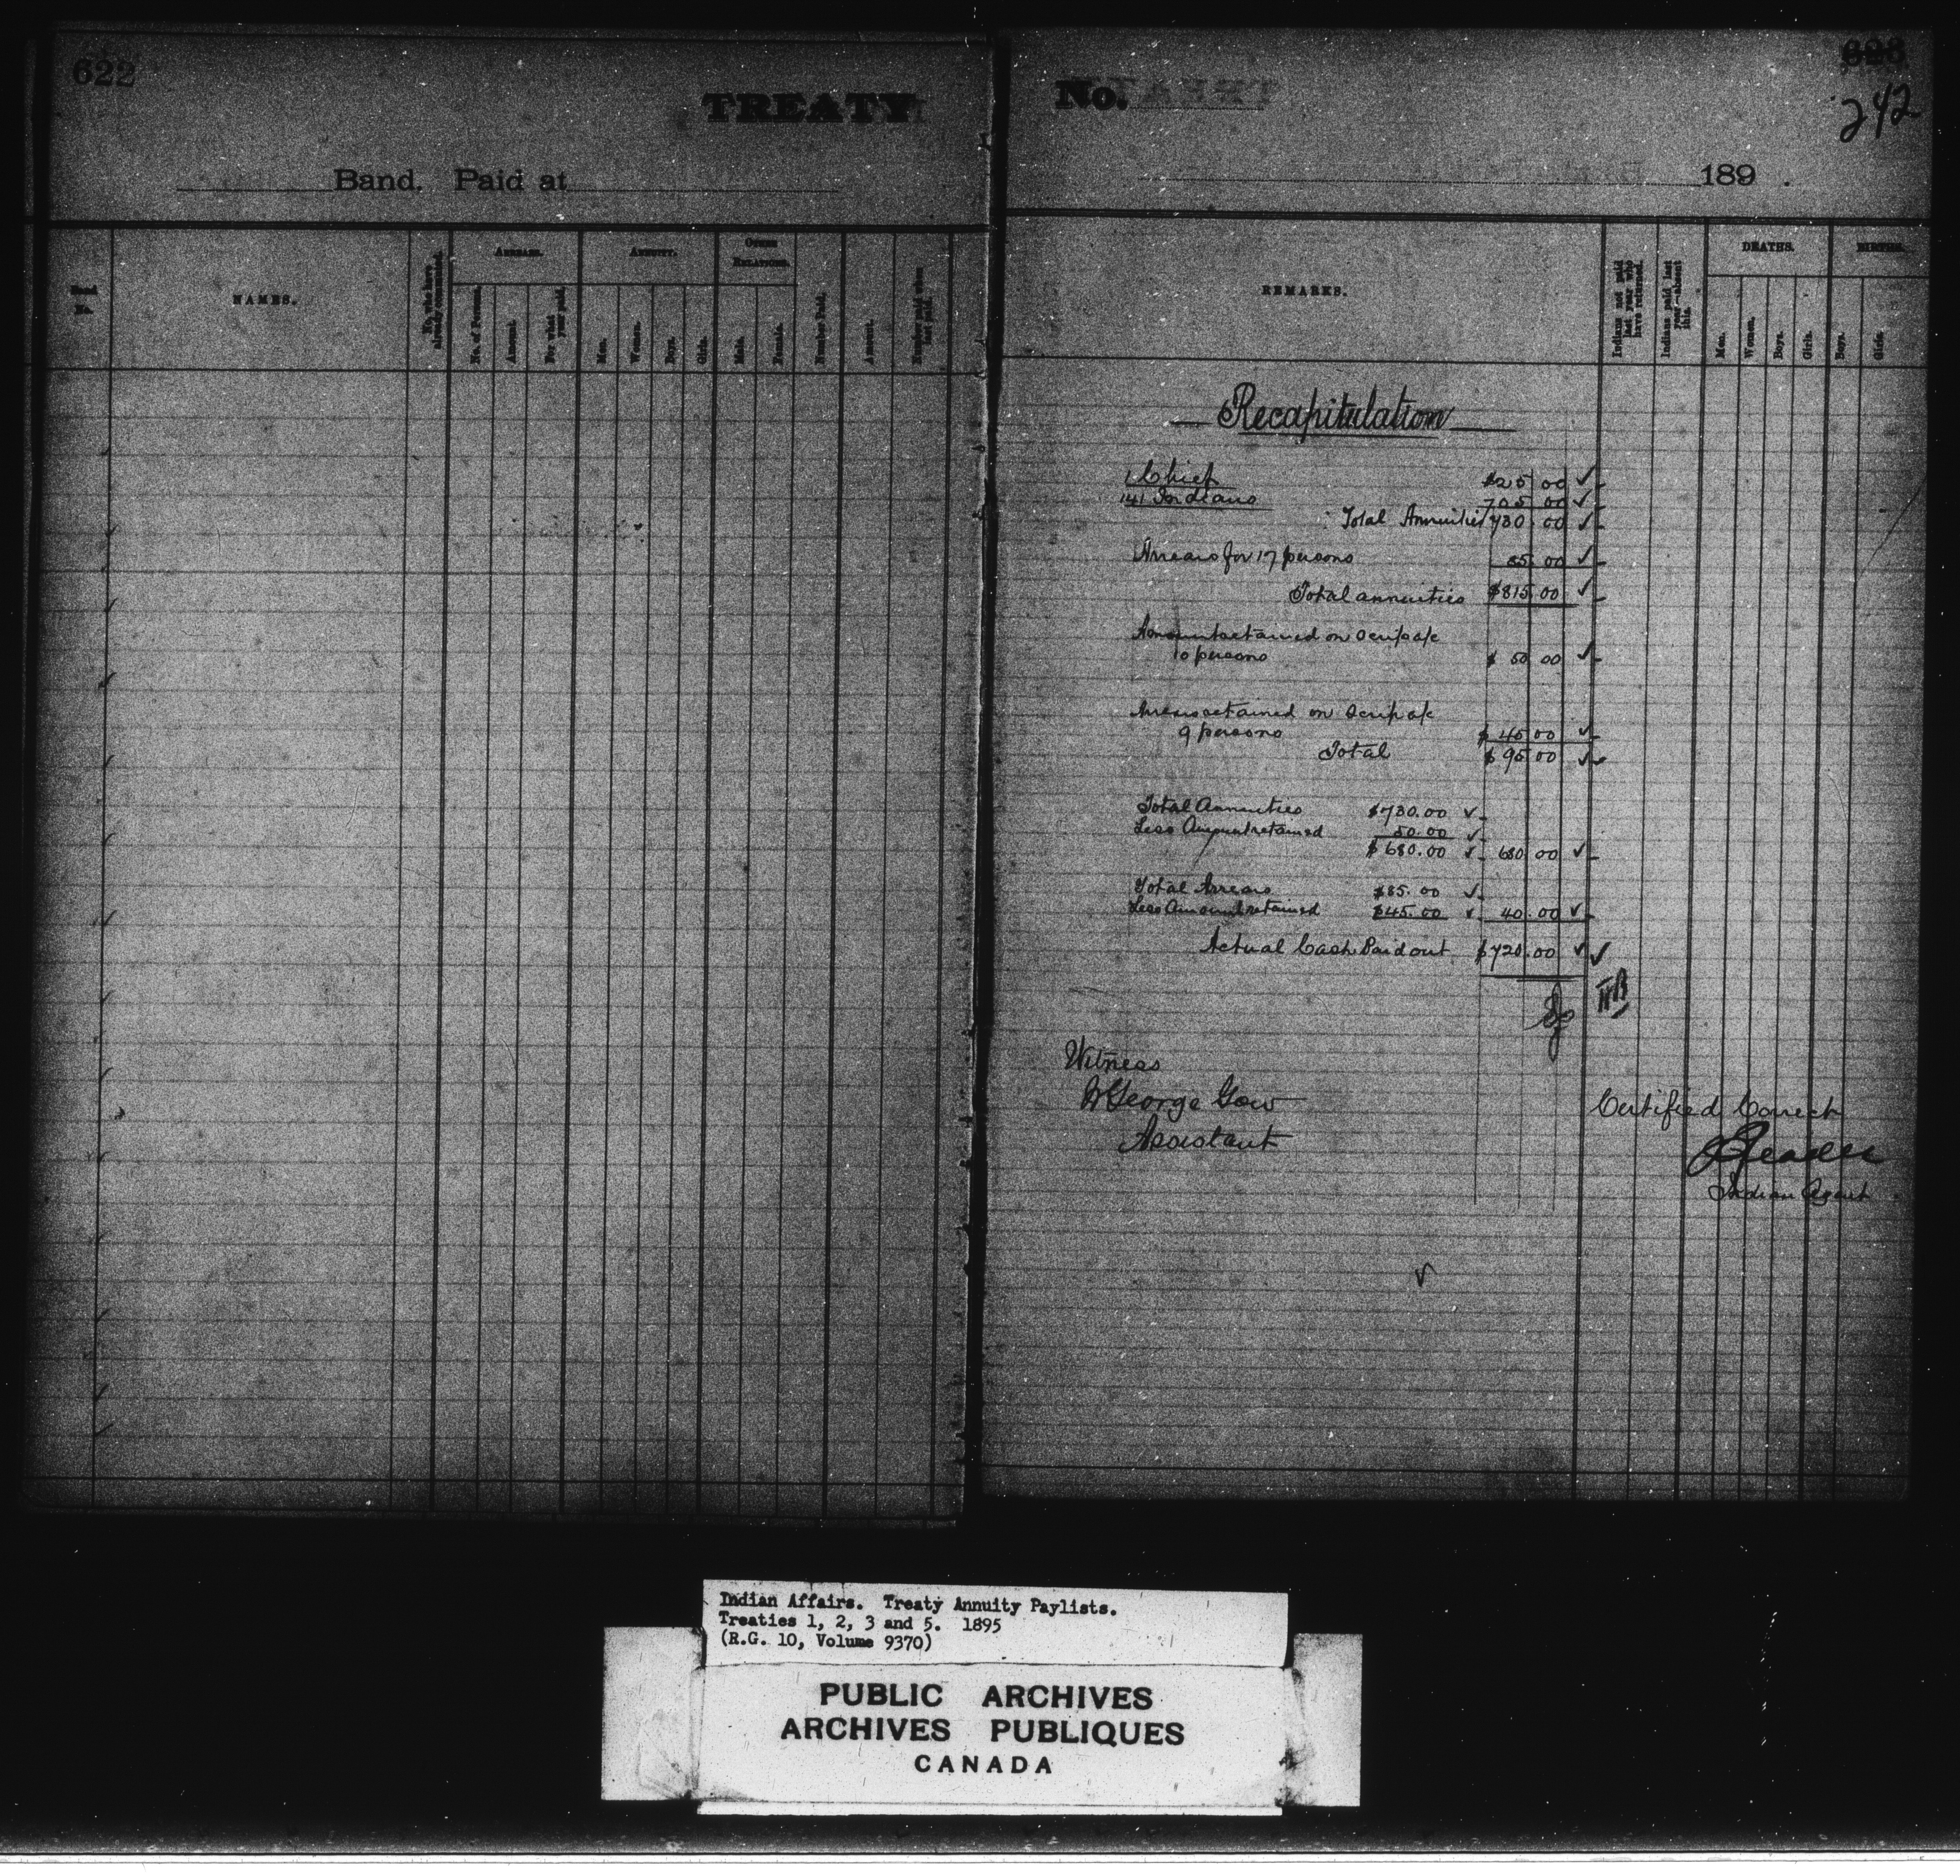 622
TREATY
Band. Paid at
Band No.
NAMES.
No. who have already commuted.
ARREARS.
No. of Persons.
Amount.
For what year paid.
ANNUITY.
Men.
Women.
Boys.
Girls.
OTHER RELATIONS.
Male.
Female.
Number Paid.
Amount.
Number paid when last paid.
No.
623
242
189 .
REMARKS.
Indians not paid last year who have returned.
Indians paid last year—absent this.
DEATHS.
Men.
Women.
Boys.
Girls.
BIRTHS.
Boys.
Girls.
Recapitulation
1 Chief $25 00 ✓
141 Indians 705 00 ✓
Total Annuities 730 00 ✓
Arrears for 17 persons 85 00 ✓
Total annuities $815.00 ✓
Amount retained on Scrip a/c
10 persons $ 50 00 ✓
Arrears retained on Scrip a/c
9 persons $ 45 00 ✓
Total $ 95 00 ✓
Total Annuities $730.00 ✓
Less Amount retained 50.00 ✓
$680.00 ✓ 680 00 ✓
Total Arrears $85.00 ✓
Less Amount retained $45.00 ✓ 40.00 ✓
Actual Cash Paid out $720.00 ✓ ✓
Witness
George Gow
Assistant
Certified Correct
J Reader
Indian Agent.
✓
Indian Affairs. Treaty Annuity Paylists.
Treaties 1, 2, 3 and 5. 1895
(R.G. 10, Volume 9370)
PUBLIC ARCHIVES
ARCHIVES PUBLIQUES
CANADA